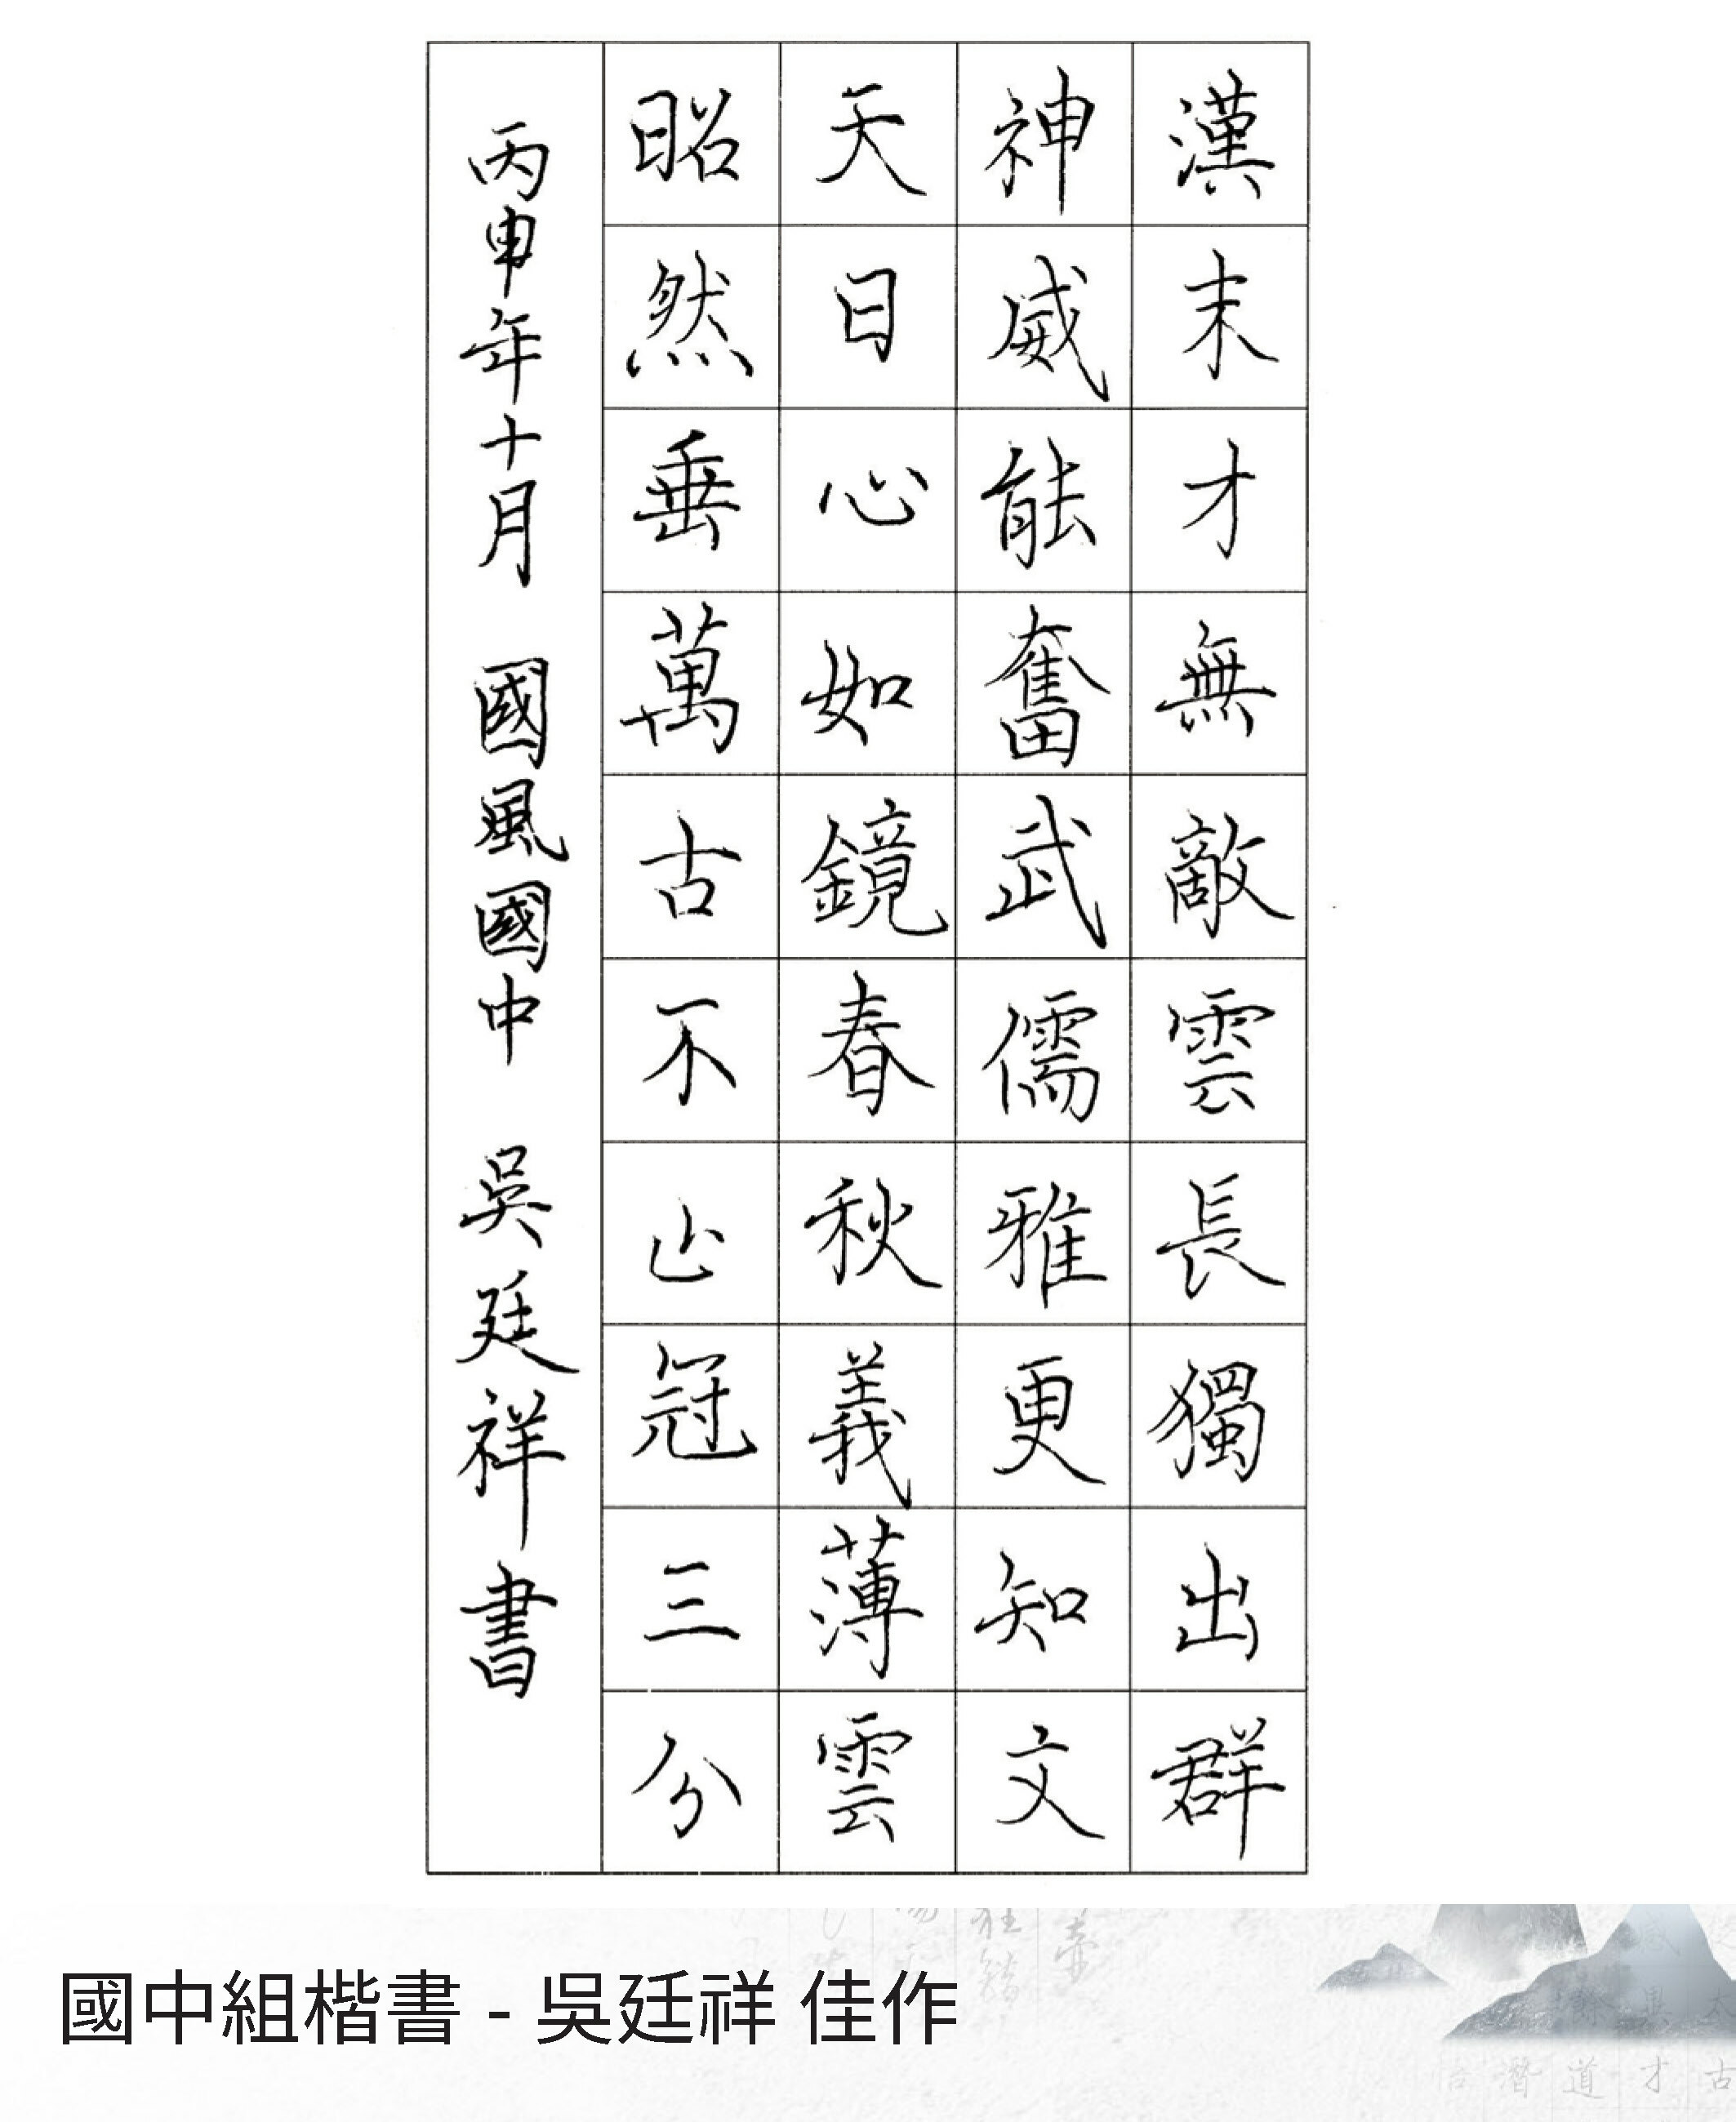 漢末才無敵雲長獨出群
神威能奮武儒雅更知文
天日心如鏡春秋義薄雲
昭然垂萬古不止冠三分
丙申年十月 國風國中 吳廷祥書
國中組楷書 - 吳廷祥 佳作